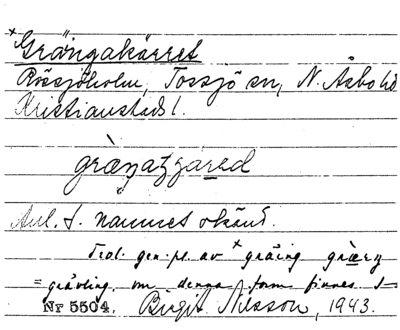 × Grängakärret
Rössjöholm, Tossjö sn, N. Åsbo hd
Kristianstads l.
græŋaʒʒared
Anl. t. namnet okänd.
Trol. gen. pl. av × gräing
= grävling, om denna form finnes.
Nr 5504. Birgit Nilsson, 1943.